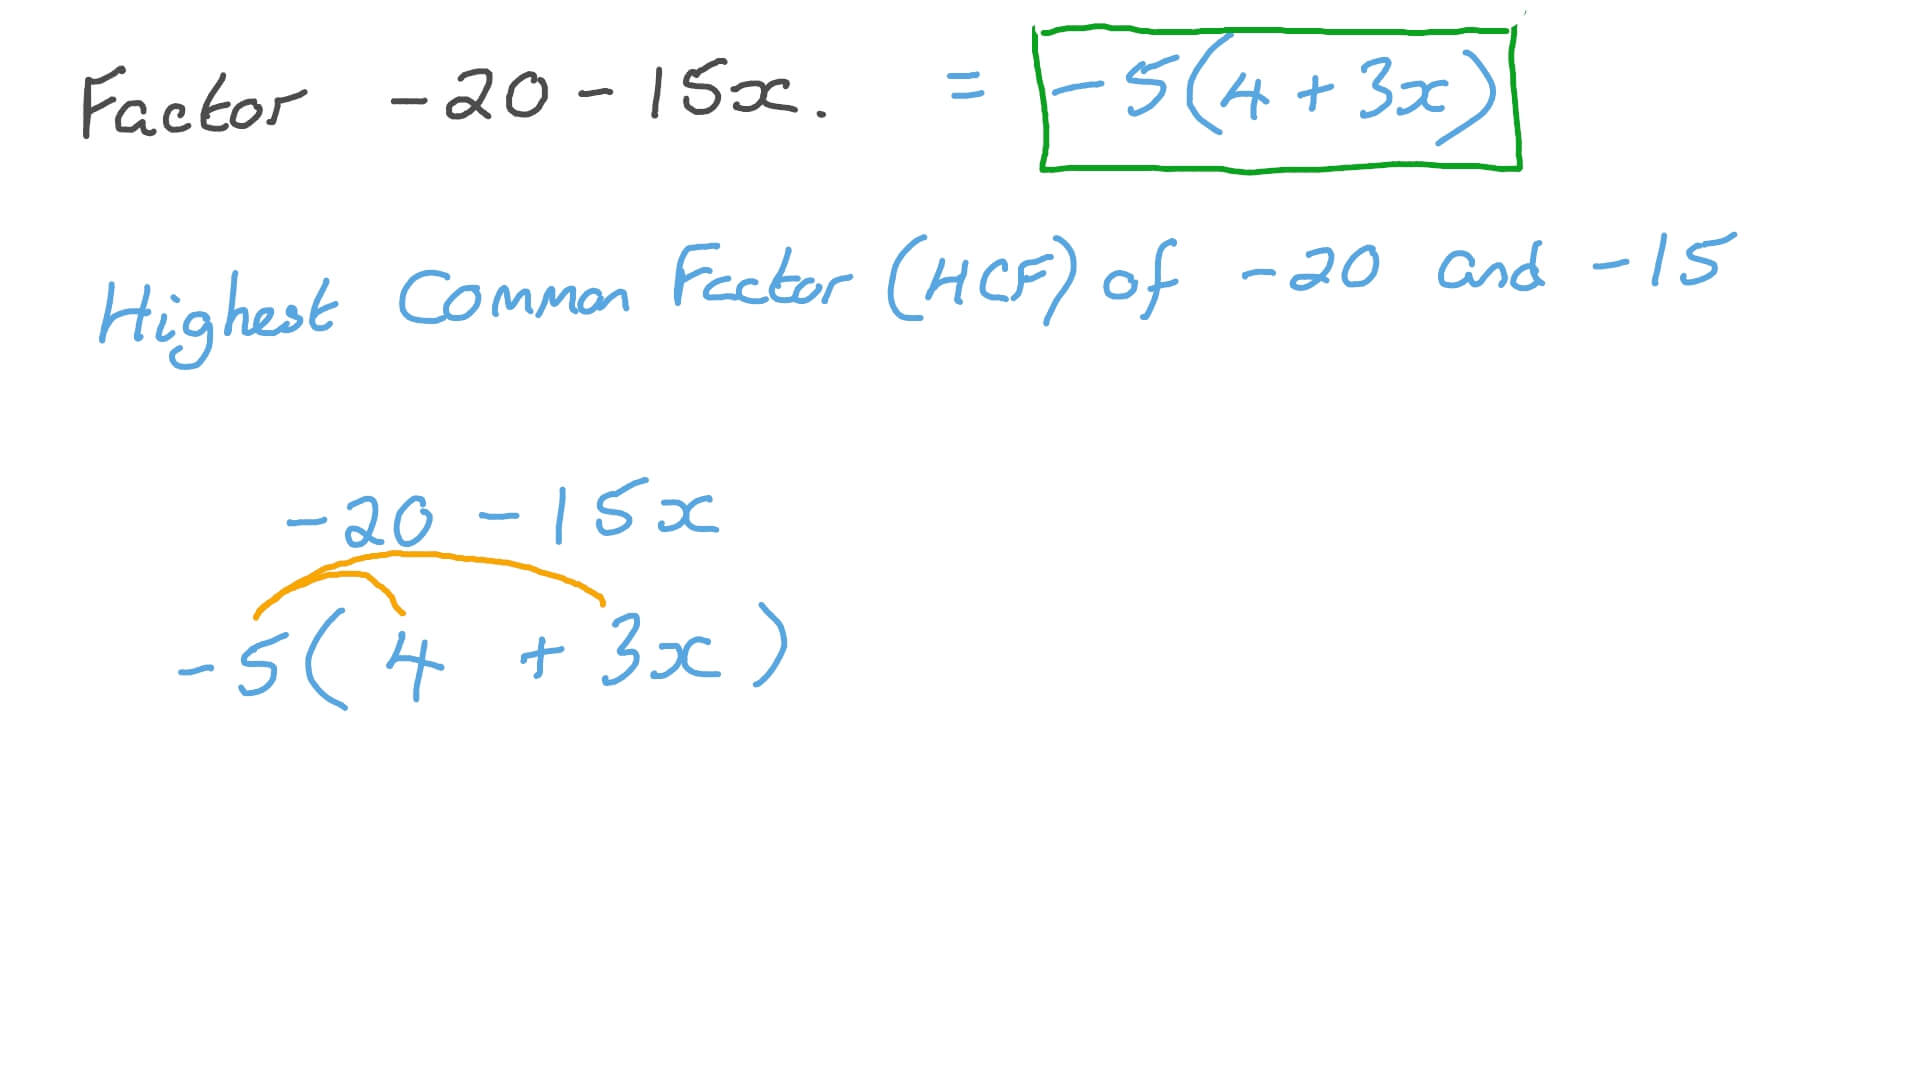 Factor -20 - 15x. = -5(4 + 3x)
Highest Common Factor (HCF) of -20 and -15
-20 - 15x
-5(4 + 3x)